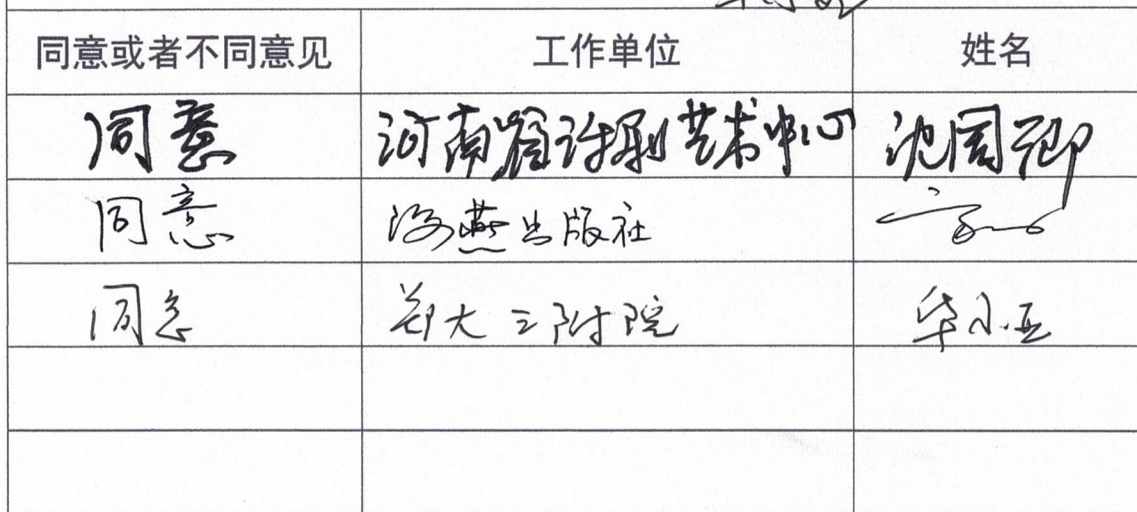 同意或者不同意见 工作单位 姓名
同意 河南省诗剧艺术中心 沈国卿
同意 海燕出版社
同意 郑大三附院 华小亚